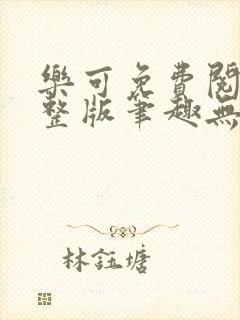 樂可免費閱
整版筆趣無
林鈺塘